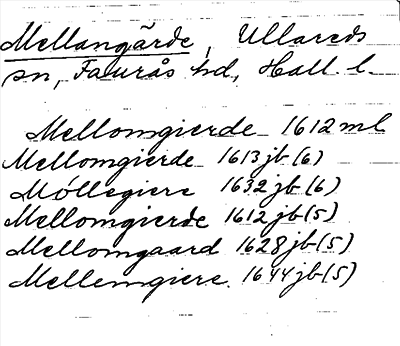 Mellangärde, Ullareds
sn, Faurås hd, Hall. l.
Mellomgierde 1612 ml
Mellomgierde 1613 jb (6)
Möllegiere 1632 jb (6)
Mellomgierde 1612 jb (5)
Mellomgaard 1628 jb (5)
Mellemgiere 1644 jb (5)